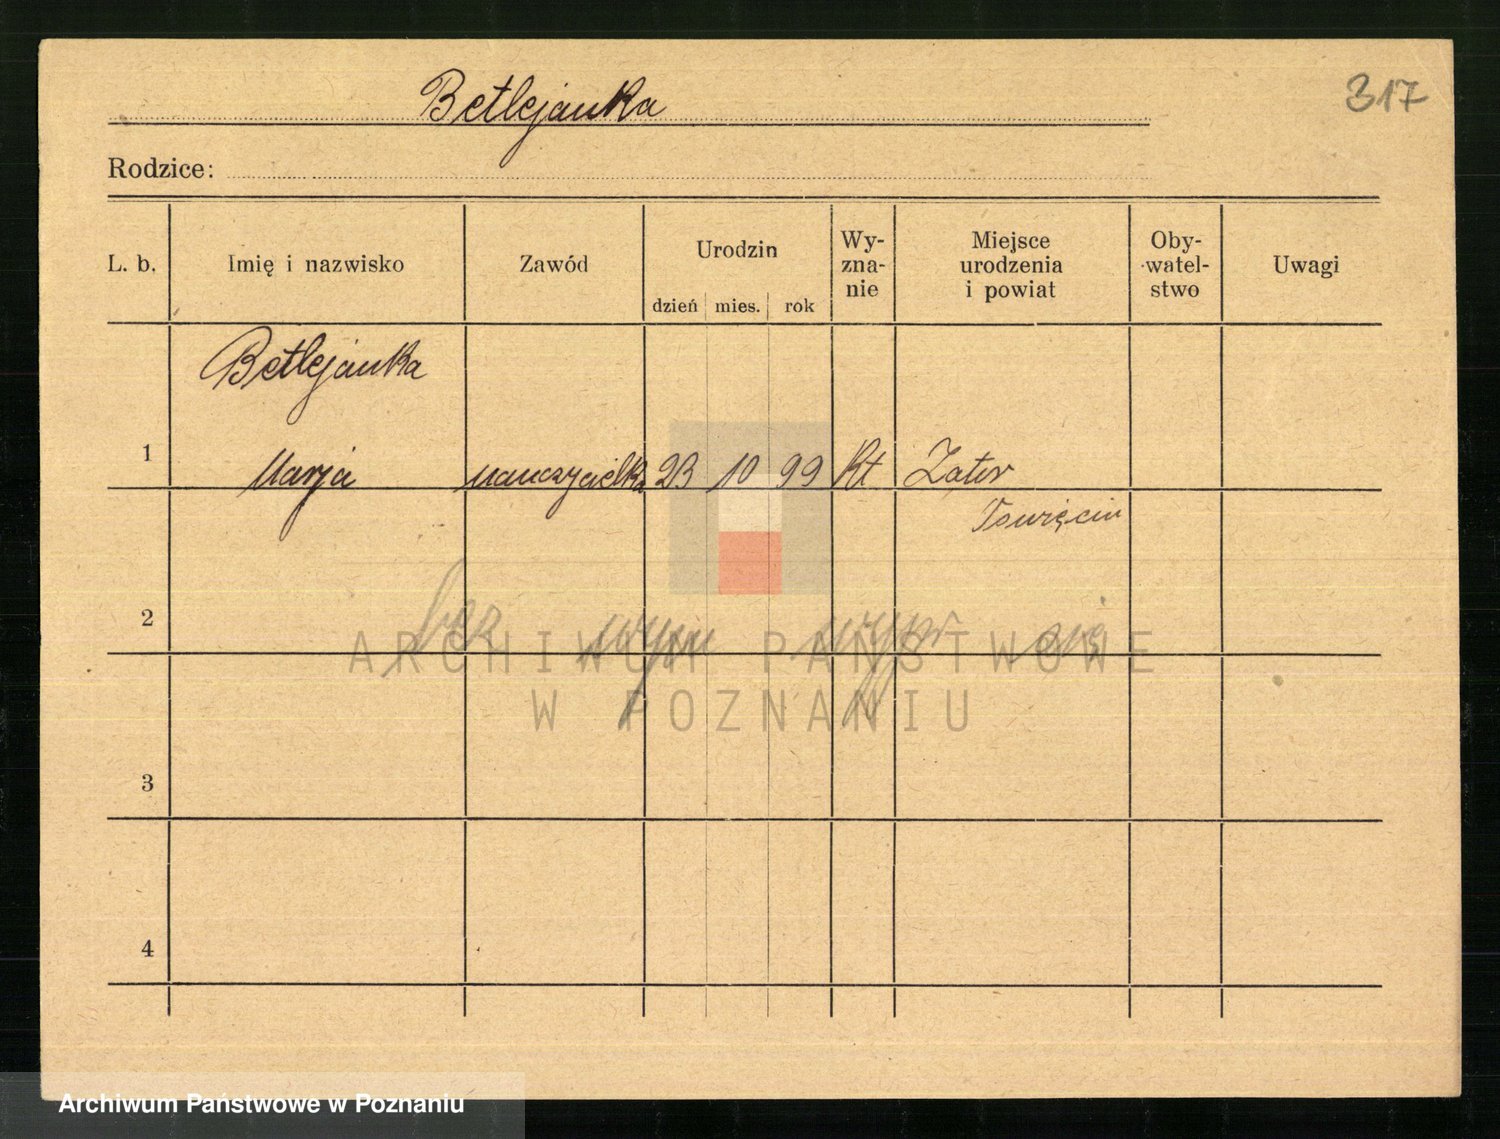 Betlejanka
317
Rodzice:
L. b.
Imię i nazwisko
Zawód
Urodzin
dzień mies. rok
Wy-
zna-
nie
Miejsce
urodzenia
i powiat
Oby-
watel-
stwo
Uwagi
Betlejanka
1 Marja nauczycielka 23 10 99 Rt Zator
2
bez się
ARCHIWUM PAŃSTWOWE
W POZNANIU
3
4
Archiwum Państwowe w Poznaniu